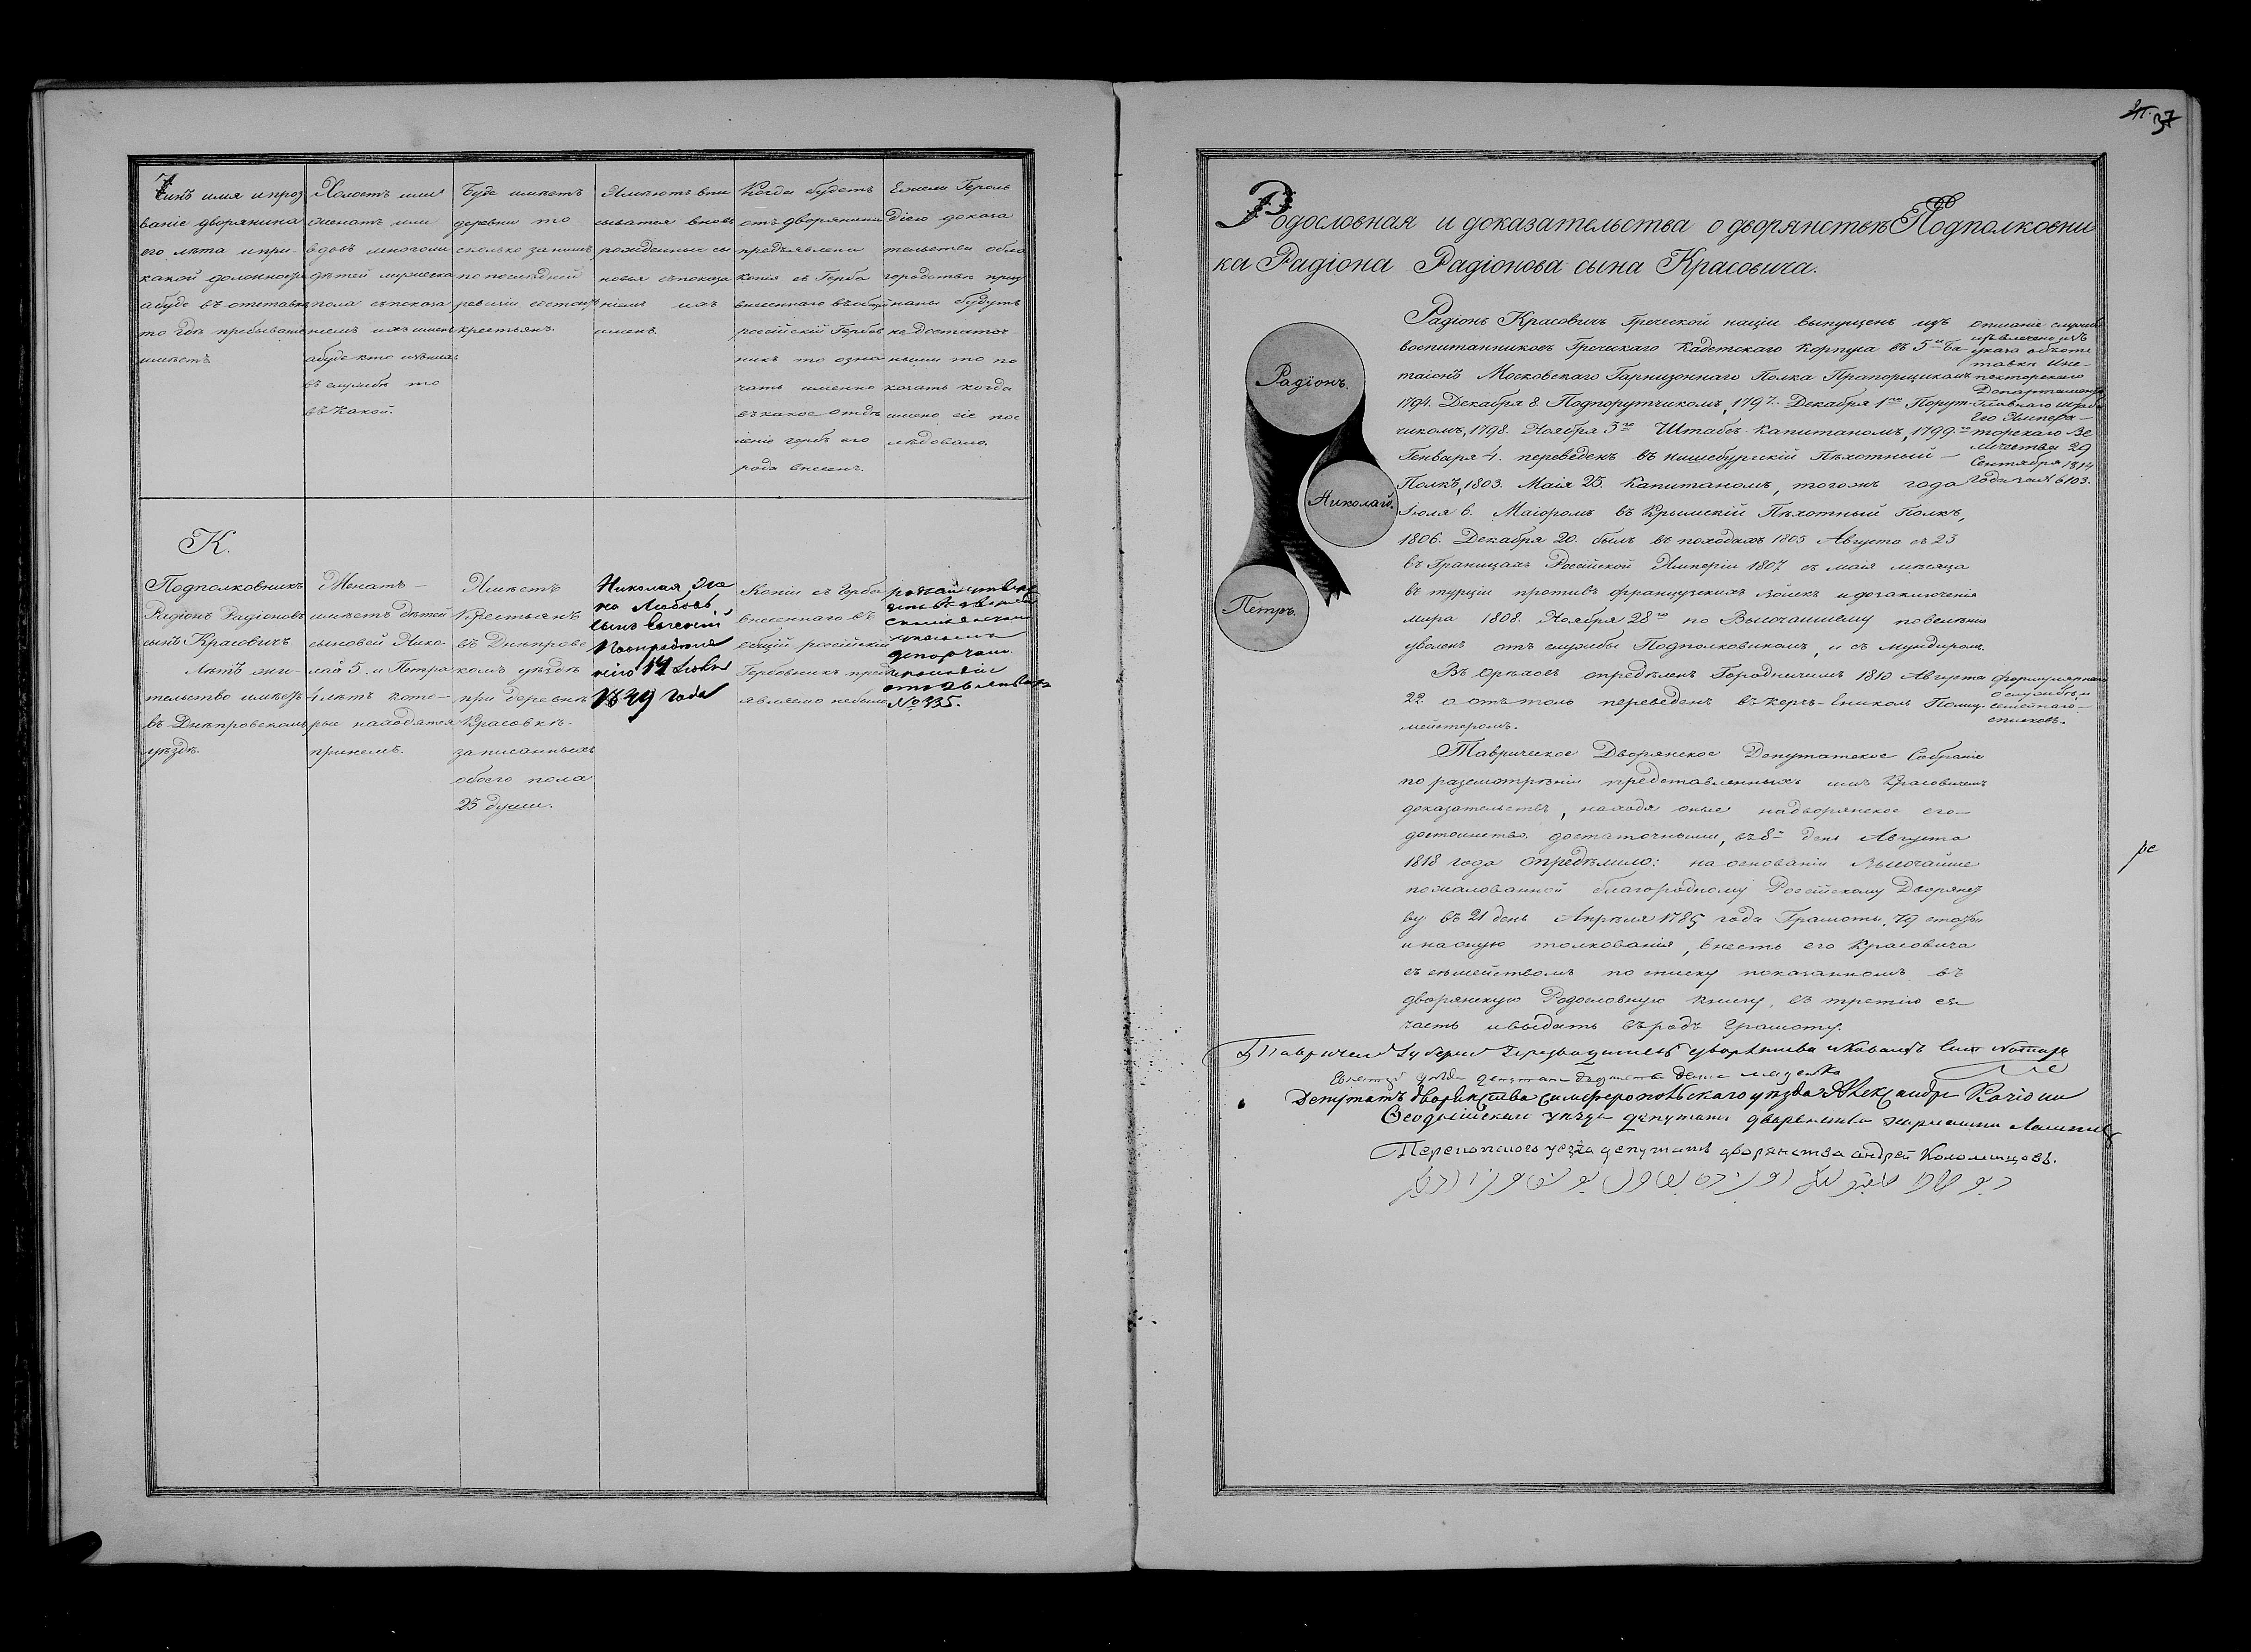 Чинъ имя и проз
ваніе дворянина
его лѣта и при-
какой должности
а буде въ отставкѣ
то гдѣ пребываніе
имѣетъ
Холостъ или
женатъ или
вдовъ многоли
дѣтей мужеска
пола съ показа
ніемъ ихъ именъ
а буде кто изъ нихъ
въ службѣ то
въ какой.
Буде имѣетъ
деревни то
сколько за нимъ
по последней
ревизіи состоитъ
крестьянъ.
Имѣютъ впи
сыватся вновь
рожденные сы
новья съ показа
ніемъ ихъ
именъ.
Когда будетъ
отъ дворянина
предъявлена
копія съ Герба
внесеннаго въ общій
россійскій Гербов
никъ то озна
чать именно
въ какое отдѣ
леніе гербъ его
рода внесенъ.
Ежели Героль
діею доказа
тельства обла
городствѣ приз
наны будутъ
недостаточ-
ными то по
казать когда
имено сіе пос
лѣдовало.
К.
Подполковникъ
Радіонъ Радіоновъ
сынъ Красовичъ
Лѣтъ жи-
тельство имѣетъ
въ Днѣпровскомъ
уѣздѣ.
Женатъ —
имѣетъ дѣтей
сыновей Нико-
лая 5. и Петра
4 лѣтъ кото-
рые находятся
при немъ.
Имѣетъ
Крестьянъ
въ Днѣпровс
комъ уѣздѣ
при деревнѣ
Красовкѣ.
записанныхъ
обоего пола
25 душъ.
Николая, Же
на Любовь,
сынъ Евгений
По определе
нію 14
1849 года
Копіи съ Герба
внесеннаго въ
общій россійскій
Гербовникъ пред
являемо небыло
№ 335.
37
Родословная и доказательства о дворянствѣ Подполковни
ка Радіона Радіонова сына Красовича.
Радіонъ.
Николай.
Петръ.
Радіонъ Красовичъ Греческой націи выпущенъ изъ
воспитанниковъ Греческаго Кадетскаго Корпуса въ 5й Ба-
таіонъ Московскаго Гарнизоннаго Полка Прапорщикомъ
1794. Декабря 8. Подпорутчикомъ, 1797. Декабря 1го Порут-
чикомъ, 1798. Ноября 3го Штабсъ-Капитаномъ, 1799го
Генваря 4. переведенъ въ Пѣхотный —
Полкъ, 1803. Маія 25. Капитаномъ, тогожъ года
Іюля 6. Маіоромъ въ Крымскій Пѣхотный Полкъ,
1806. Декабря 20. былъ въ походахъ 1805 Августа съ 23
въ Границахъ Россійской Имперіи 1807 съ маія мѣсяца
въ турціи противъ французскихъ войскъ и до заключенія
мира 1808. Ноября 28го по Высочайшему повелѣнію
уволенъ отъ службы Подполковникомъ, и съ мундиромъ.
описаніе службы
извлечено изъ
указа объ отс
тавки Инс-
пекторскаго
Департамента
Главнаго штаба
Его Импера-
торскаго Ве
личества 29
Сентября 1814
года за № 6103.
Въ Орѣховъ опредѣленъ Городничимъ 1810 Августа
22. а оттоль переведенъ въ Керчь-Ениколь Полиц-
мейстеромъ.
формулярнаго
о службѣ и
семейнаго-
списковъ.
Таврическое Дворянское Депутатское Собраніе
по разсмотрѣніи представленныхъ имъ Красовичемъ
доказательствъ, находя оные на дворянское его-
достоинство достаточными, въ 8й день Августа
1818 года опредѣлило: на основаніи Высочайше
пожалованной благородному Россійскому Дворянст
ву въ 21 день Апрѣля 1785 года Грамоты, 79 статьи
и на оную толкованія, внесть его Красовича
съ семействомъ по списку показанномъ въ
дворянскую Родословную книгу, въ третію ея
часть и выдать въ родъ грамоту.
Депутатъ дворянства симферопольскаго уѣзда Александръ
Феодосійскаго уѣзда депутатъ дворянства
Перекопского уезда депутатъ дворянства андрей Коломийцовъ.